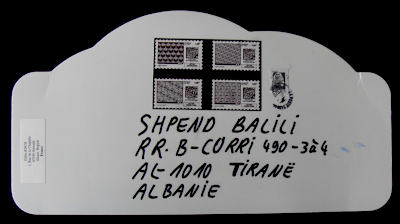 SHPEND BALILI
RR. B-CURRI 490-3à4
AL-1010 TIRANË
ALBANIE